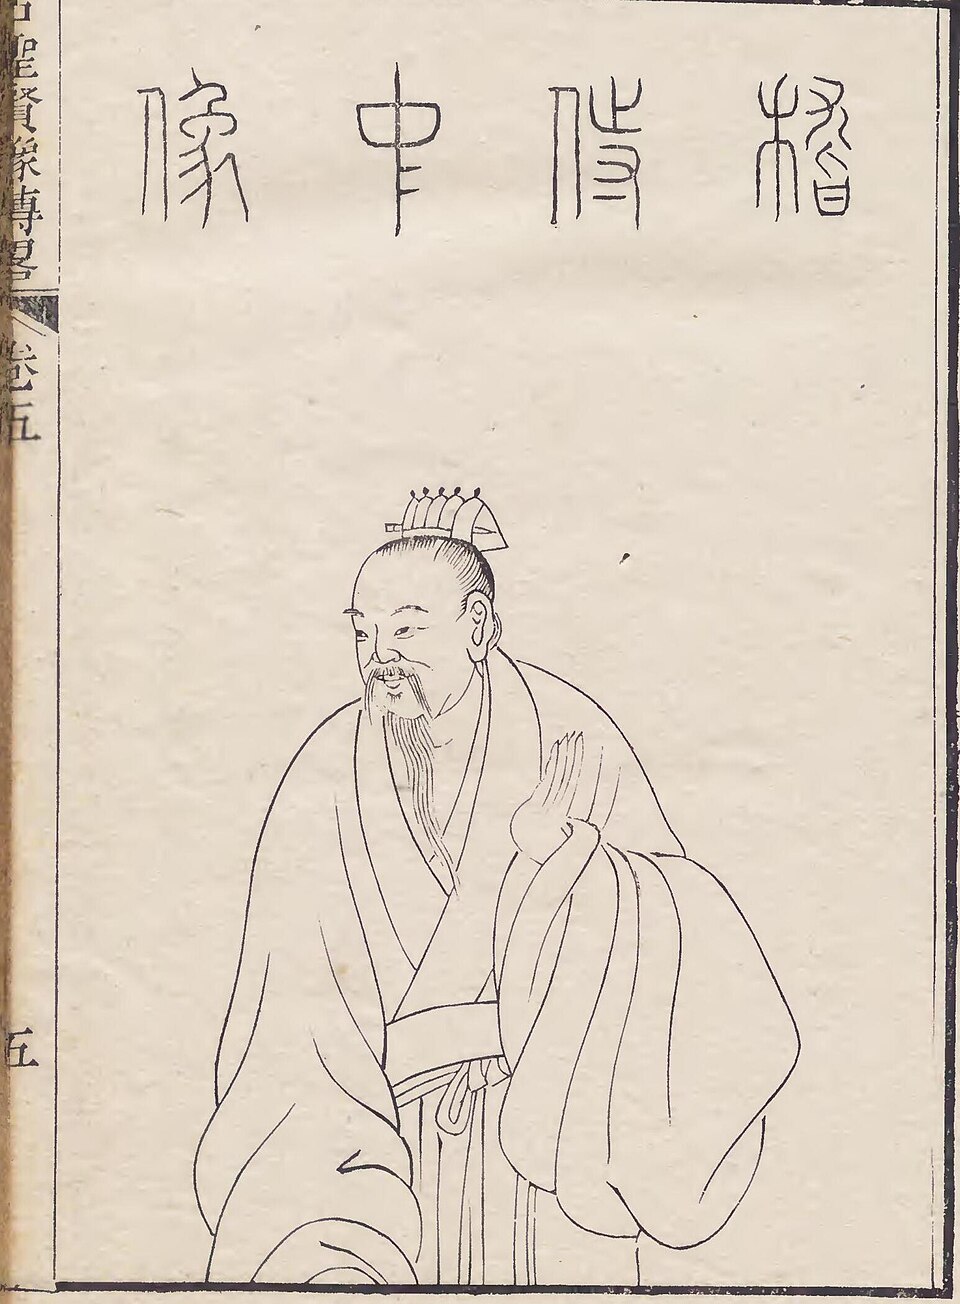 稽侍中像
古聖賢像傳畧
卷五
五